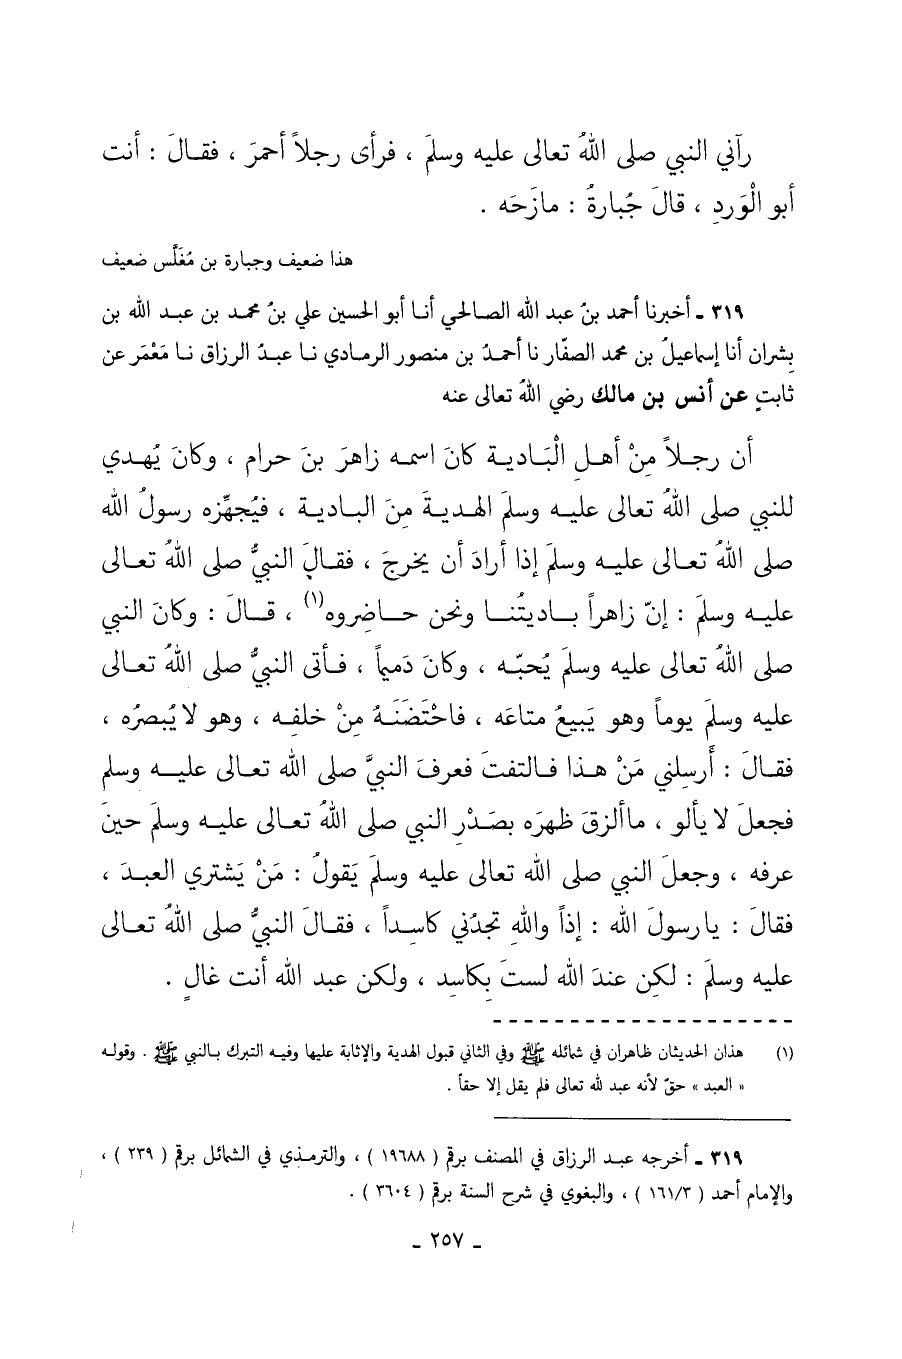 رآني النبي صلى اللهُ تعالى عليه وسلمَ ، فرأى رجلاً أحمرَ ، فقالَ : أنت
أبو الْوَردِ ، قالَ جُبارةُ : مازَحَه .
هذا ضعيف وجبارة بن مُغَلَّس ضعيف
٣١٩ ـ أخبرنا أحمد بنُ عبد الله الصالحي أنا أبو الحسين علي بنُ محمد بن عبد الله بن
بِشران أنا إسماعيلُ بن محمد الصفّار نا أحمدُ بن منصور الرمادي نا عبدُ الرزاق نا مَعْمَر عن
ثابتٍ عن أنس بن مالك رضي اللهُ تعالى عنه
أن رجلاً مِنْ أهلِ الْبَادية كانَ اسمه زاهرَ بنَ حرام ، وكانَ يُهدي
للنبي صلى اللهُ تعالى عليه وسلمَ الهديةَ مِنَ البادية ، فيُجهِّزه رسولُ الله
صلى اللهُ تعالى عليه وسلمَ إذا أرادَ أن يخرجَ ، فقالَ النبيُّ صلى اللهُ تعالى
عليه وسلمَ : إنّ زاهراً باديتُنا ونحن حاضِروه(١) ، قالَ : وكانَ النبي
صلى اللهُ تعالى عليه وسلمَ يُحبّه ، وكانَ دَمياً ، فأتى النبيُّ صلى اللهُ تعالى
عليه وسلمَ يوماً وهو يَبيعُ متاعَه ، فاحْتَضَنَهُ مِنْ خلفِه ، وهو لا يُبصرُه ،
فقالَ : أَرسِلني مَنْ هذا فالتفتَ فعرفَ النبيَّ صلى الله تعالى عليه وسلم
فجعلَ لا يألو ، ما ألزقَ ظهرَه بصَدْرِ النبي صلى اللهُ تعالى عليه وسلمَ حينَ
عرفه ، وجعلَ النبي صلى الله تعالى عليه وسلمَ يَقولُ : مَنْ يَشتري العبدَ ،
فقالَ : يا رسولَ الله : إذاً واللهِ تجدُني كاسِداً ، فقالَ النبيُّ صلى اللهُ تعالى
عليه وسلمَ : لكِن عندَ الله لستَ بِكاسِد ، ولكن عبد الله أنت غالٍ .
(١) هذان الحديثان ظاهران في شمائله ﷺ وفي الثاني قبول الهدية والإثابة عليها وفيه التبرك بالنبي ﷺ . وقوله
« العبد » حقّ لأنه عبد لله تعالى فلم يقل إلا حقاً .
٣١٩ ـ أخرجه عبد الرزاق في المصنف برقم ( ١٩٦٨٨ ) ، والترمذي في الشمائل برقم ( ٢٣٩ ) ،
والإمام أحمد ( ١٦١/٣ ) ، والبغوي في شرح السنة برقم ( ٣٦٠٤ ) .
ـ ٢٥٧ ـ